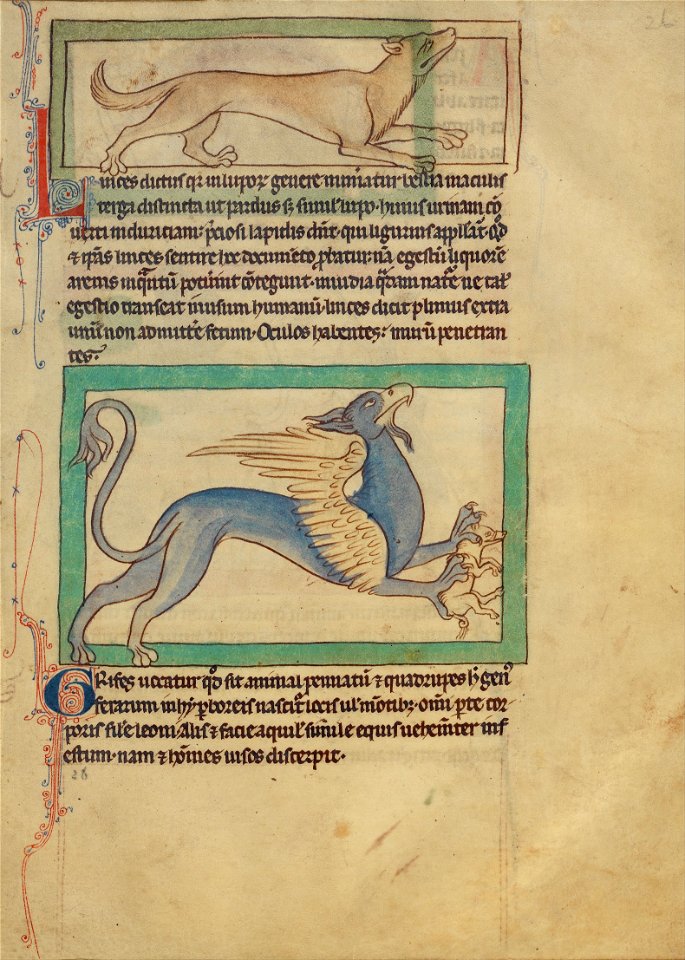 26
Linces dictus qr̄ in lupoꝝ genere num̄atur bestia maculis
terga distincta ut pardus sꝫ simil' lupo. huius urinam cō
uerti in duriciam p̄ciosi lapidis dn̄t. qui ligurius appllat'. qd̄
& ip̄as linces sentire hoc documēto ꝓbatur. nā egestū liquorē
arenis inqͣntū potuint cōtegunt. inuidia qͣdam nat̄e ne tal'
egestio transeat in usum humanū. linces dicit plinius extra
unū non admitt̄e fetum. Oculos habentes: murū penetran
tes.
GRifes uocatur qd̄ sit animal pennatū & quadrupes h̄ gen'
ferarum in hyꝑboreis nascit' locis ul' montibꝫ. om̄i ꝑte cor
poris sil̄e leoni. Alis & facie aquil' simile equis uehem̄ter inf
estum. nam & hōines uisos discerpit.
26